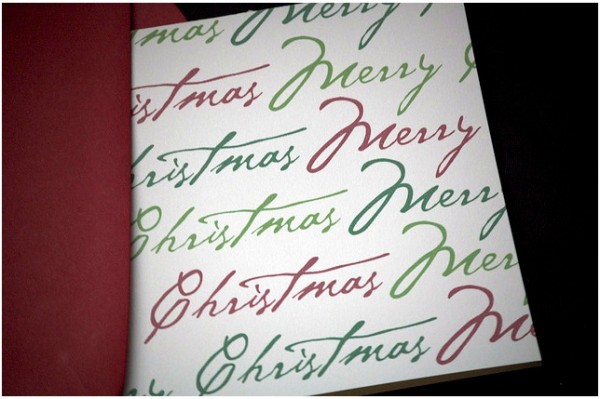 tmas Merry
istmas Merry C
hristmas Merry
Christmas Merry
Christmas Mer
ry Christmas Me